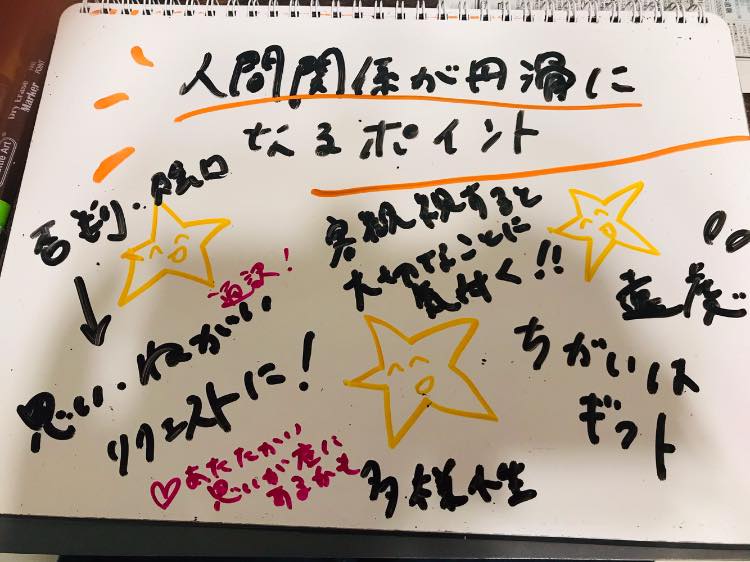 人間関係が円滑に
なるポイント
舌打ち・陰口
通訳!
思い・ねがい
リクエストに!
♡あたたかい
思いが底に
あるかも
客観視すると
大切なことに
気付く!!
多様性
ちがいは
ギフト
Marker